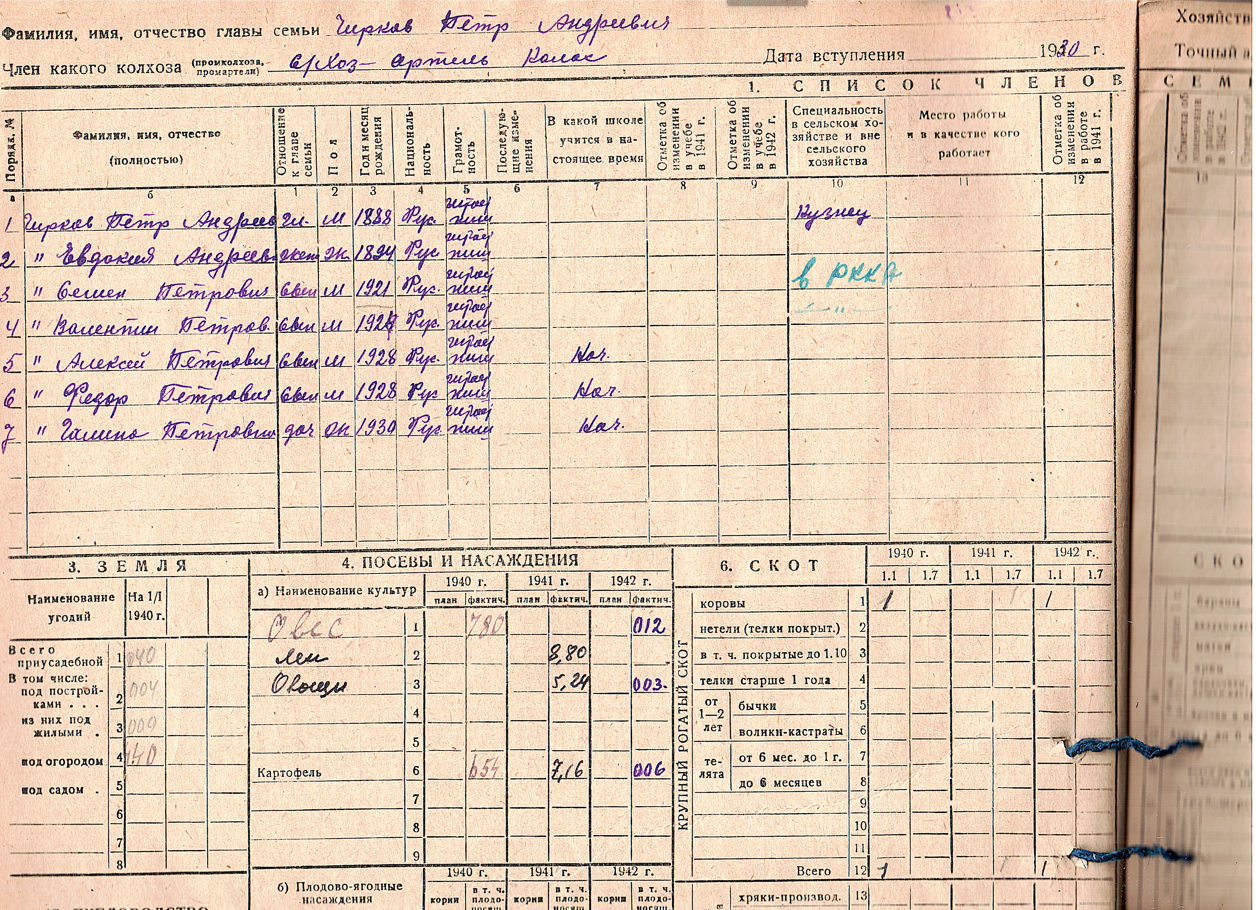 Фамилия, имя, отчество главы семьи Чирков Петр Андреевич
Член какого колхоза (промколхоза, промартели) с/хоз- артель Колос Дата вступления 1930 г.
1. СПИСОК ЧЛЕНОВ
Порядк. № Фамилия, имя, отчество (полностью) Отношение к главе семьи Пол Год и месяц рождения Националь-ность Грамот-ность Последую-щие изме-нения В какой школе учится в на-стоящее время Отметка об изменении в учебе в 1941 г. Отметка об изменении в учебе в 1942 г. Специальность в сельском хо-зяйстве и вне сельского хозяйства Место работы и в качестве кого работает Отметка об изменении в работе в 1941 г.
а б 1 2 3 4 5 6 7 8 9 10 11 12
1 Чирков Петр Андреев гл. м 1888 Рус. читает пиш Кузнец
2 " Евдокия Андреев жен ж 1894 Рус читает пиш
3 " Семен Петрович сын м 1921 Рус. читает пиш в РККА
4 " Валентин Петров. сын м Рус. читает пиш — " —
5 " Алексей Петрович сын м 1928 Рус. читает пиш Нач.
6 " Федор Петрович сын м 1928 Рус читает пиш Нач.
7 " Галина Петровна доч ж 1930 Рус читает пиш Нач.
3. ЗЕМЛЯ
Наименование угодий На 1/I 1940 г.
Всего приусадебной 1 040
В том числе:
под построй-ками . . . 2 004
из них под жилыми . 3 009
под огородом 4
под садом . 5
6
7
8
4. ПОСЕВЫ И НАСАЖДЕНИЯ
а) Наименование культур 1940 г. 1941 г. 1942 г.
план фактич. план фактич. план фактич.
Овес 1 780 012
Лен 2 8,80
Овощи 3 5,24 003-
4
5
Картофель 6 654 7,16 006
7
8
9
б) Плодово-ягодные насаждения 1940 г. 1941 г. 1942 г.
корни в т. ч. плодо- корни в т. ч. плодо- корни в т. ч. плодо-
6. СКОТ
1940 г. 1941 г. 1942 г.
1.1 1.7 1.1 1.7 1.1 1.7
КРУПНЫЙ РОГАТЫЙ СКОТ
коровы 1 1 1 1
нетели (телки покрыт.) 2
в т. ч. покрытые до 1.10 3
телки старше 1 года 4
от 1—2 лет бычки 5
волики-кастраты 6
те-лята от 6 мес. до 1 г. 7
до 6 месяцев 8
9
10
11
Всего 12 1 1 1
хряки-производ. 13
Хозяйств
Точный а
СЕМ
СКО